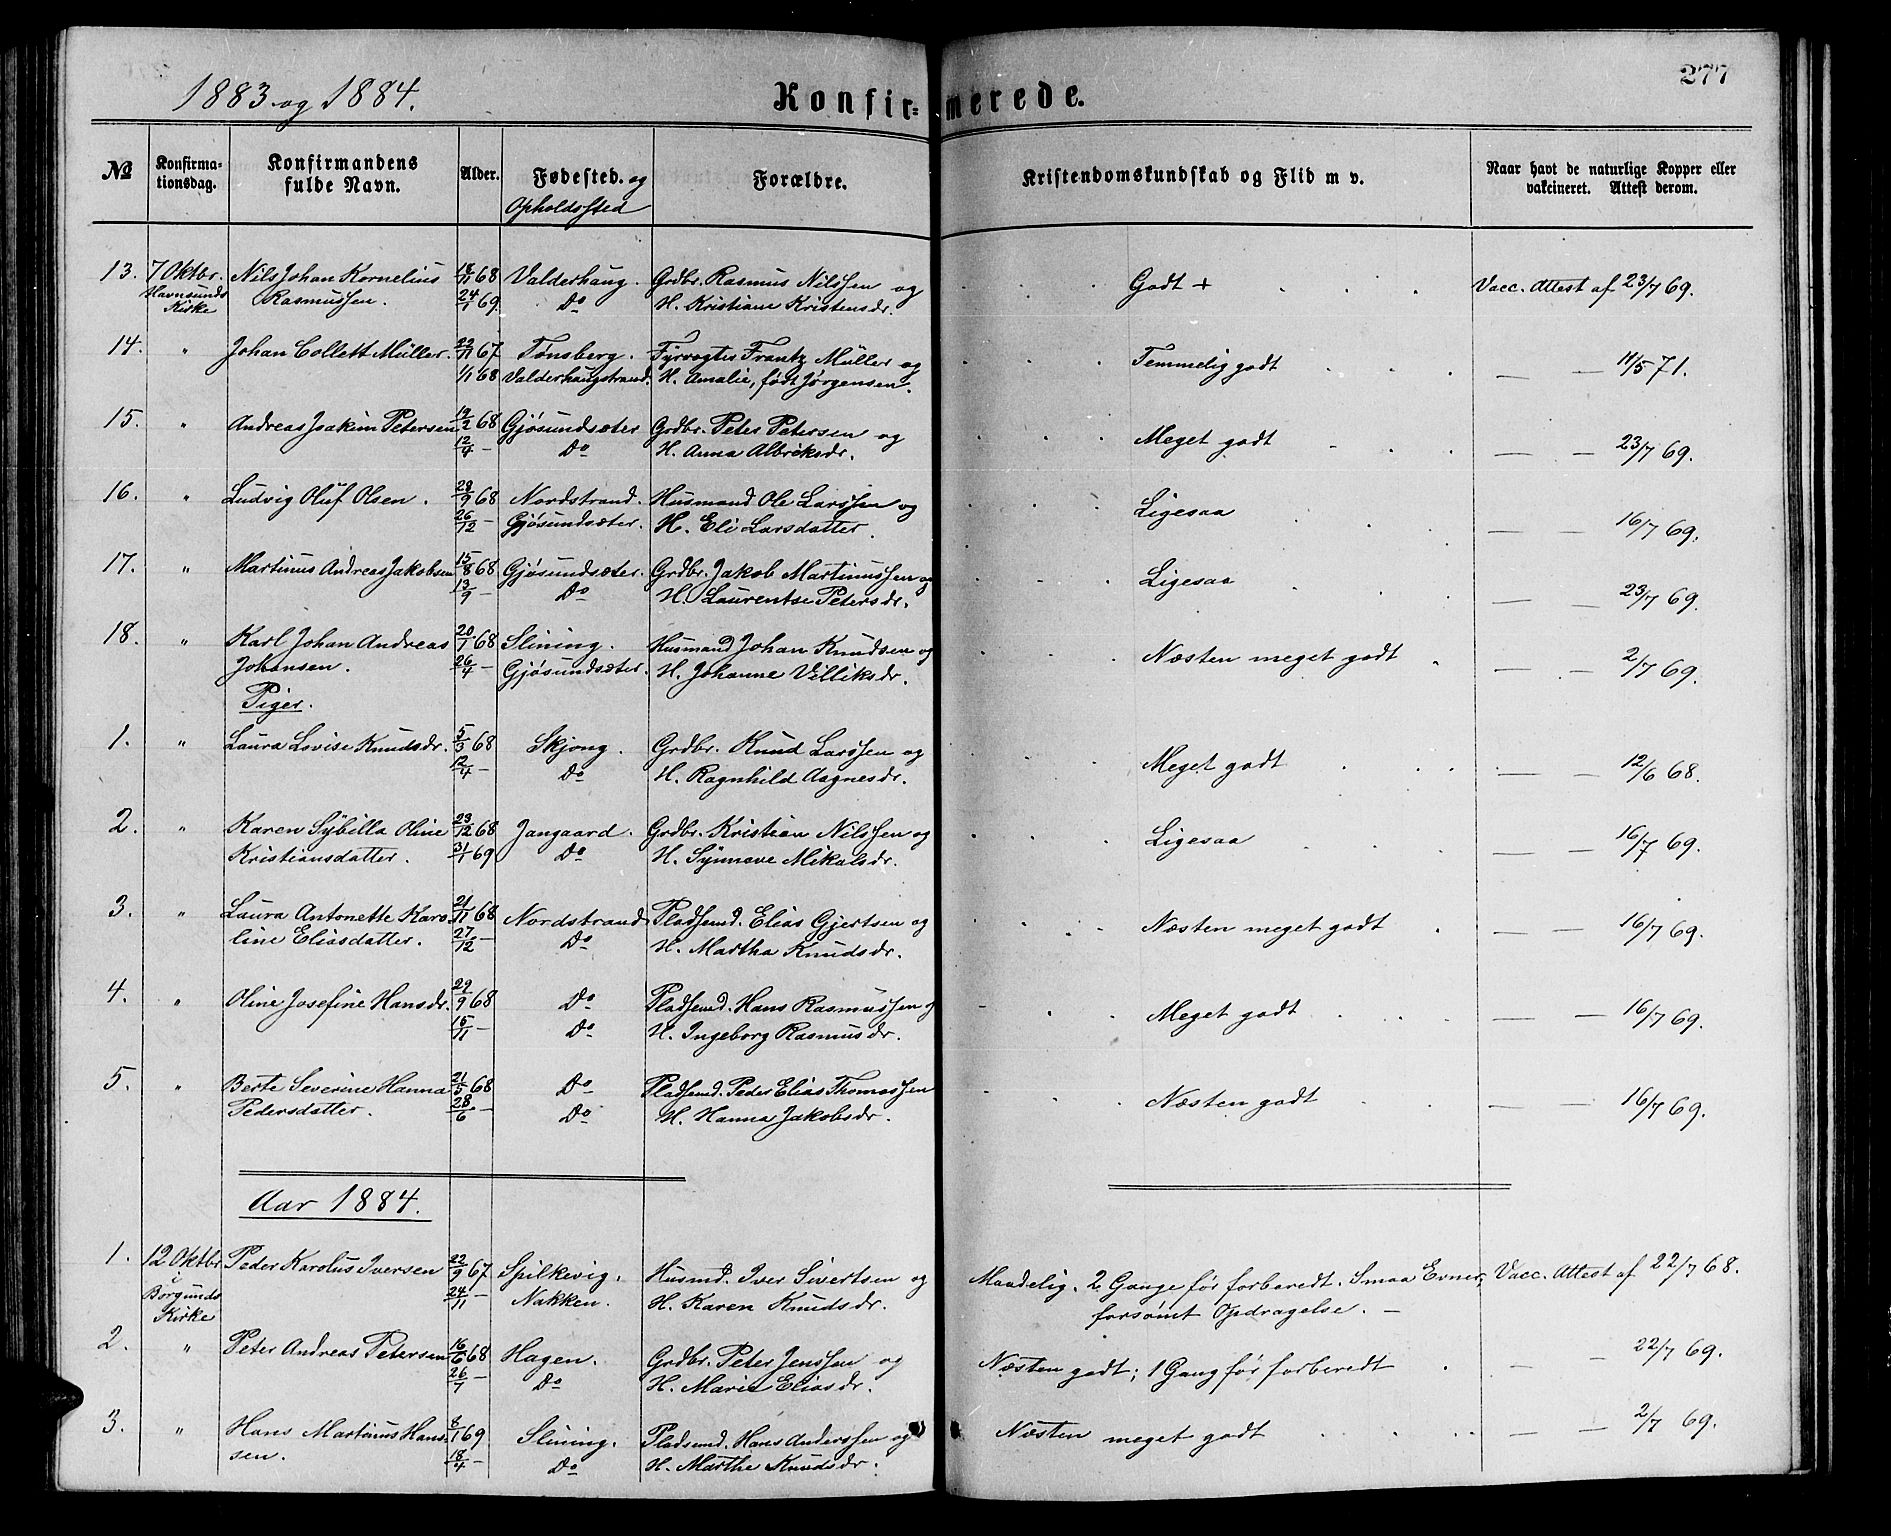 277
1883 og 1884.
Konfirmerede.
№ Konfirma-tionsdag. Konfirmandens fulde Navn. Alder. Fødested. og Opholdssted Forældre. Kristendomskundskab og Flid m v. Naar havt de naturlige Kopper eller vakcineret. Attest derom.
13. 7 Oktbr. Nils Johan Kornelius 18/11 68 Valderhaug. Grdbr. Rasmus Nilssen og Godt + Vacc. Attest af 23/7 69.
Havnsunds Kirke Rasmussen. 24/1 69. Do H. Kristiane Kristensdr.
14. " Johan Collett Müller. 22/11 67 Tønsberg. Fyrvogter Frantz Müller og Temmelig godt — — 11/5 71.
1/1 68 Valderhaugstrand. H. Amalie, født Jørgensen.
15. " Andreas Joakim Petersen 19/2 68 Gjøsundsæter Grdbr. Peter Petersen og Meget godt — — 23/7 69.
12/4 — Do H. Anna Albriksdr.
16. " Ludvig Oluf Olsen. 28/9 68 Nordstrand. Husmand Ole Larssen og Ligesaa — — 16/7 69.
26/12 — Gjøsundsæter. H. Eli Larsdatter.
17. " Martinus Andreas Jakobsen 15/8 68 Gjøsundsæter. Grdbr. Jakob Martinussen og Ligesaa — — 23/7 69.
13/9 — Do H. Laurentse Petersdr.
18. " Karl Johan Andreas 20/1 68 Slining. Husmand Johan Knudsen og Næsten meget godt — — 2/7 69.
Johansen. 26/4 — Gjøsundsæter. H. Johanne Villiksdr.
Piger.
1. " Laura Lovise Knudsdr. 5/3 68 Skjong. Grdbr. Knud Larssen og Meget godt — — 12/6 68.
12/4 — Do H. Ragnhild Aagnesdr.
2. " Karen Sybilla Oline 23/12 68 Jangaard. Grdbr. Kristian Nilssen og Ligesaa — — 16/7 69.
Kristiansdatter. 31/1 69 Do H. Synneve Mikalsdr.
3. " Laura Antonette Karo 21/11 68 Nordstrand Pladsemd. Elias Gjertsen og Næsten meget godt — — 16/7 69.
line Eliasdatter. 27/12 — Do H. Martha Knudsdr.
4. " Oline Josefine Hansdr. 22/9 68 Do Pladsemd. Hans Rasmussen og Meget godt — — 16/7 69.
15/11 — Do H. Ingeborg Rasmusdr.
5. " Berte Severine Hanna 21/5 68 Do Pladsemd. Peder Elias Thomassen Næsten godt — — 16/7 69.
Pedersdatter. 28/6 — Do H. Hanna Jakobsdr.
Aar 1884.
1. 12 Oktbr Peder Karolus Iversen 22/9 67 Spilkevig. Husmd. Iver Sivertsen og Maadelig. 2 Gange før forberedt. Smaa Evner, Vacc. Attest af 22/7 68.
i Borgunds Kirke 24/11 — Nakken. H. Karen Knudsdr. forsømt Opdragelse. —
2. " Peter Andreas Petersen 16/6 68 Hagen. Grdbr. Peter Jenssen og Næsten godt; 1 Gang før forberedt — — 22/7 69.
26/7 — Do H. Marie Eliasdr.
3. " Hans Martinus Hans- 8/1 69 Slining. Pladsemd. Hans Anderssen og Næsten meget godt — — 2/7 69.
sen. 18/4 — Do H. Marthe Knudsdr.